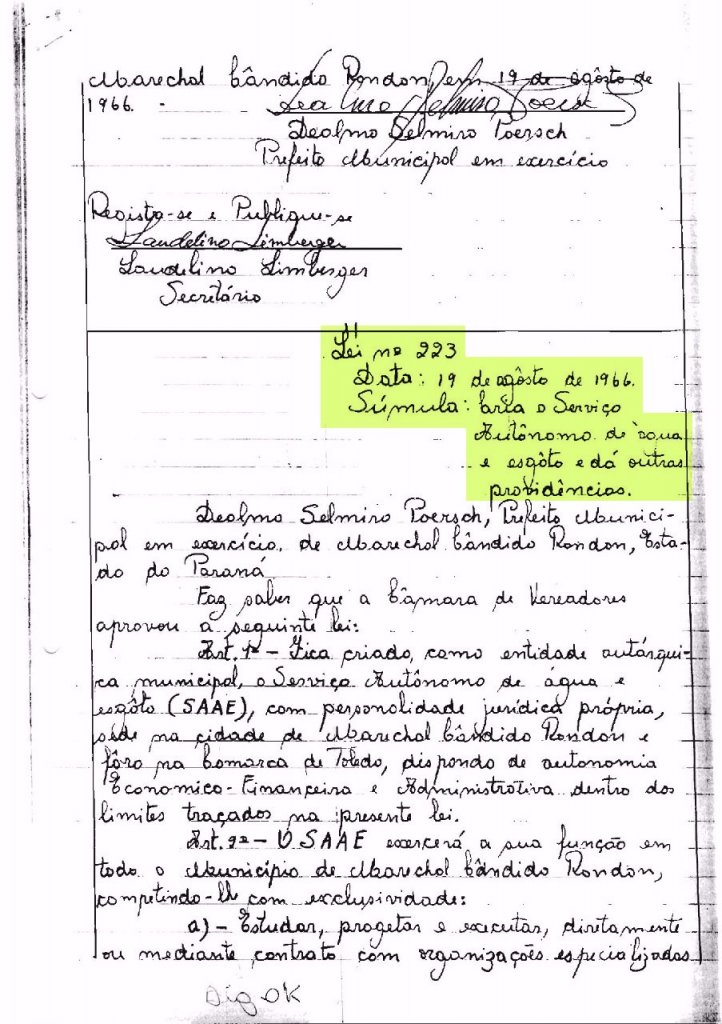 Marechal Cândido Rondon, em 19 de agôsto de
1966. -
Dealmo Selmiro Poersch
Dealmo Selmiro Poersch
Prefeito Municipal em exercício
Registe-se e Publique-se
Laudelino Limberger
Laudelino Limberger
Secretário
Lei nº 223
Data: 19 de agôsto de 1966.
Súmula: Cria o Serviço
Autônomo de água
e esgôto e dá outras
providências.
Dealmo Selmiro Poersch, Prefeito Munici-
pal em exercício. de Marechal Cândido Rondon, Esta-
do do Paraná
Faz saber que a Câmara de Vereadores
aprovou a seguinte lei:
Art. 1º - Fica criado, como entidade autárqui-
ca municipal, o Serviço Autônomo de água e
esgôto (SAAE), com personalidade jurídica própria,
sede na cidade de Marechal Cândido Rondon e
fôro na Comarca de Toledo, dispondo de autonomia
Economico-Financeira e Administrativa dentro dos
limites traçados na presente lei.
Art. 2º - O SAAE exercerá a sua função em
todo o Município de Marechal Cândido Rondon,
competindo-lhe com exclusividade:
a) - Estudar, progetar e executar, diretamente
ou mediante contrato com organizações especializadas
Dig OK